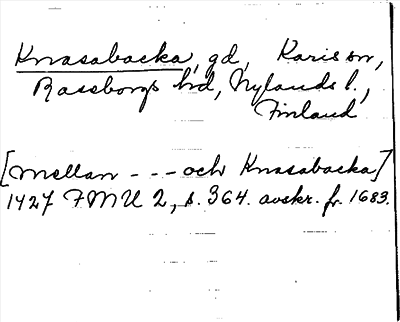 Knasabacka, gd, Karis sn,
Raseborgs hd, Nylands l.,
Finland
[Mellan - - - och Knasabacka]
1427 FMU 2, s. 364. avskr. fr. 1683.